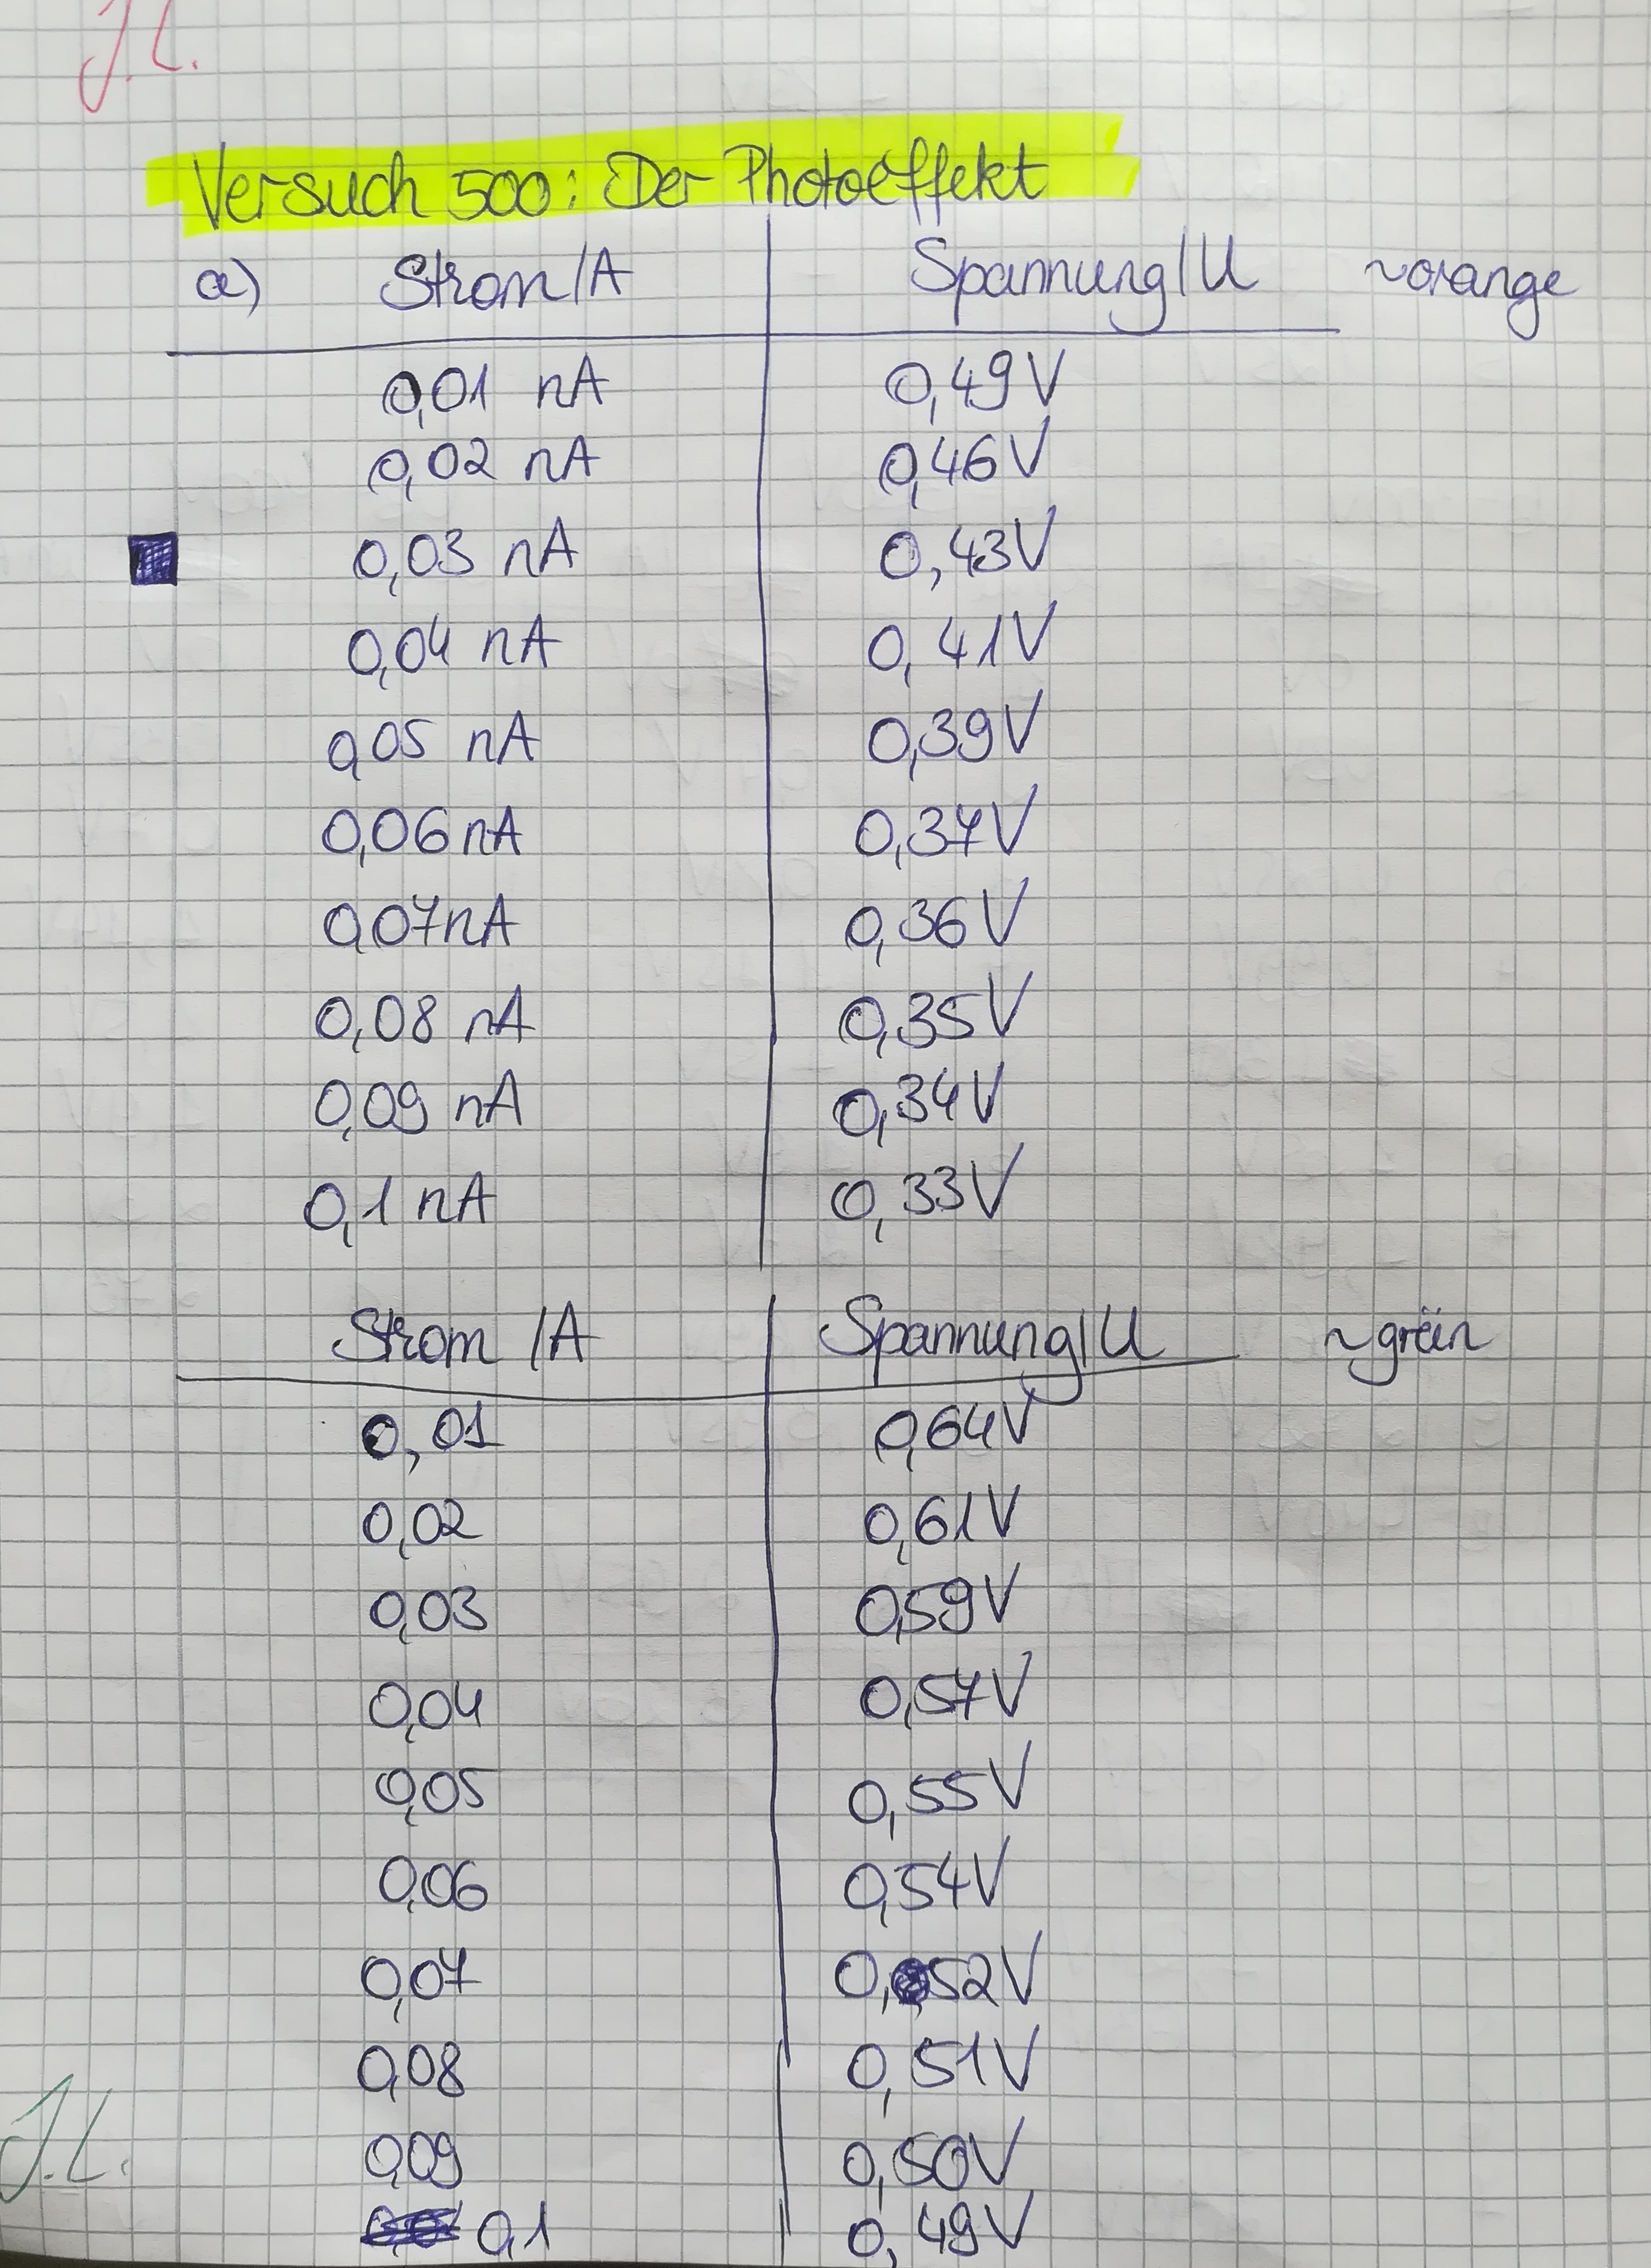 J.L.
Versuch 500: Der Photoeffekt
a) Strom/A Spannung/U ~orange
0,01 nA 0,49V
0,02 nA 0,46V
0,03 nA 0,43V
0,04 nA 0,41V
0,05 nA 0,39V
0,06 nA 0,37V
0,07nA 0,36V
0,08 nA 0,35V
0,09 nA 0,34V
0,1 nA 0,33V
Strom /A Spannung/U ~grün
0,01 0,64V
0,02 0,61V
0,03 0,59V
0,04 0,57V
0,05 0,55V
0,06 0,54V
0,07 0,52V
0,08 0,51V
0,09 0,50V
0,1 0,49V
J.L.